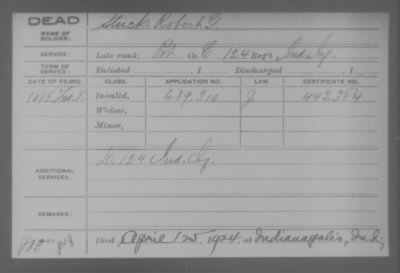 DEAD
NAME OF SOLDIER:
Stuck Robert G.
SERVICE:
Late rank, Pvt. Co. C, 124 Reg't Ind. Inf.
TERM OF SERVICE:
Enlisted , 1 Discharged , 1
DATE OF FILING. CLASS. APPLICATION NO. LAW. CERTIFICATE NO.
1888 Invalid, 639.310 J. 443.384
Widow,
Minor,
ADDITIONAL SERVICES:
D. 124 Ind. Inf.
REMARKS:
Died April 1924, at Indianapolis, Ind.